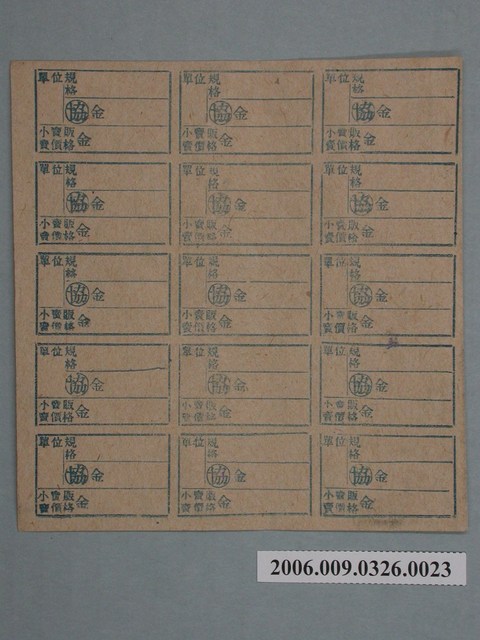 單位規格
協金
小賣販賣價格金
單位規格
協金
小賣販賣價格金
單位規格
協金
小賣販賣價格金
單位規格
協金
小賣販賣價格金
單位規格
協金
小賣販賣價格金
單位規格
協金
小賣販賣價格金
單位規格
協金
小賣販賣價格金
單位規格
協金
小賣販賣價格金
單位規格
協金
小賣販賣價格金
單位規格
協金
小賣販賣價格金
單位規格
協金
小賣販賣價格金
單位規格
協金
小賣販賣價格金
單位規格
協金
小賣販賣價格金
單位規格
協金
小賣販賣價格金
單位規格
協金
小賣販賣價格金
2006.009.0326.0023